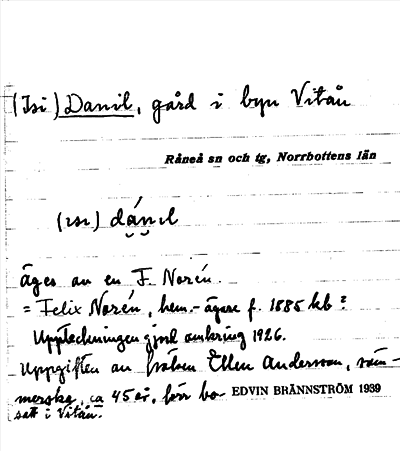 (Isi) Danil, gård i byn Vitån
Råneå sn och tg, Norrbottens län
(ɪsɪ) dánɪl
äges av en F. Norén.
= Felix Norén, hem.-ägare f. 1885 kb?
Uppteckningen gjord omkring 1926.
Uppgiften av fröken Ellen Andersson, söm-
merska, ca 45 år, förr bo-
EDVIN BRÄNNSTRÖM 1939
satt i Vitån.